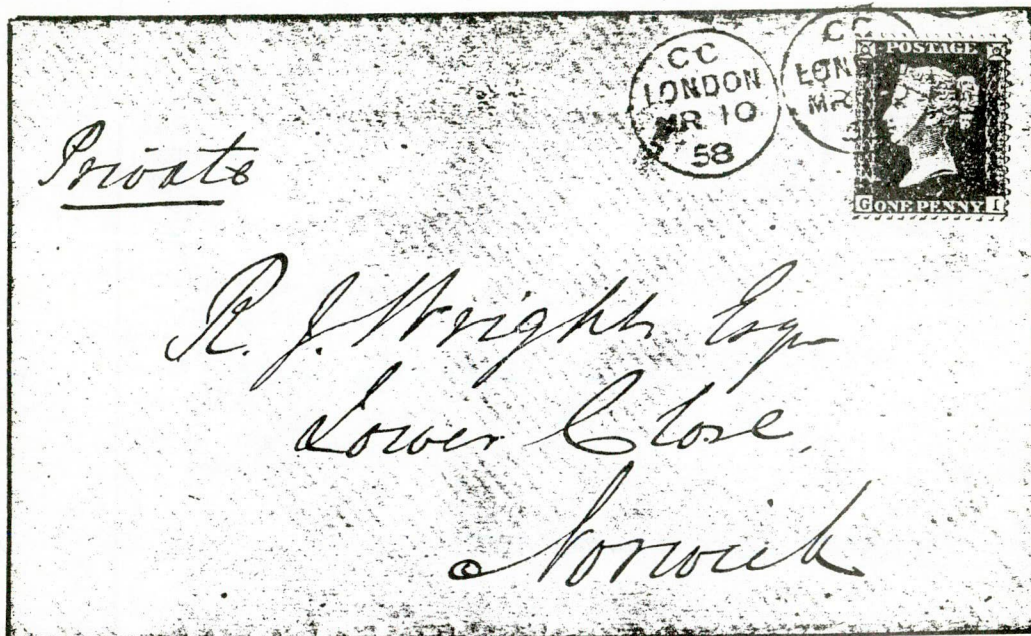 CC
LONDON
MR 10
58
CC
LON
MR
5
POSTAGE
G ONE PENNY I
Private
R. J. Wright Esq
Lower Close,
Norwich